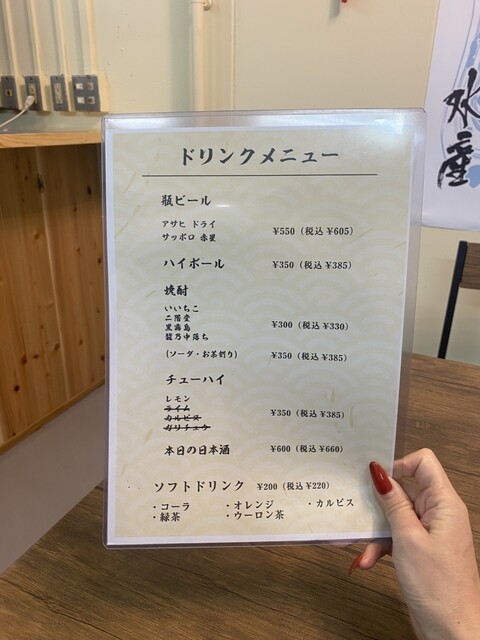 ドリンクメニュー
瓶ビール
アサヒ ドライ
サッポロ 赤星
¥550（税込 ¥605）
ハイボール ¥350（税込 ¥385）
焼酎
いいちこ
二階堂
黒霧島
¥300（税込 ¥330）
（ソーダ・お茶割り） ¥350（税込 ¥385）
チューハイ
レモン
ライム
カルピス
ガリチュウ
¥350（税込 ¥385）
本日の日本酒 ¥600（税込 ¥660）
ソフトドリンク ¥200（税込 ¥220）
・コーラ ・オレンジ ・カルピス
・緑茶 ・ウーロン茶
水産